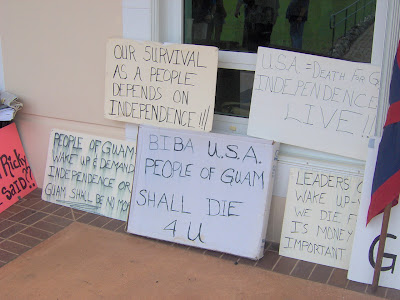 OUR SURVIVAL
AS A PEOPLE
DEPENDS ON
INDEPENDENCE !!!
U.S.A. = DEATH FOR G
INDEPENDENCE
LIVE!!!
PEOPLE OF GUAM
WAKE UP & DEMAND
INDEPENDENCE OR
GUAM SHALL BE NO MO
BIBA U.S.A.
PEOPLE OF GUAM
SHALL DIE
4 U
LEADERS
WAKE UP-
WE DIE F
IS MONEY
IMPORTANT
Ricky
said??
G